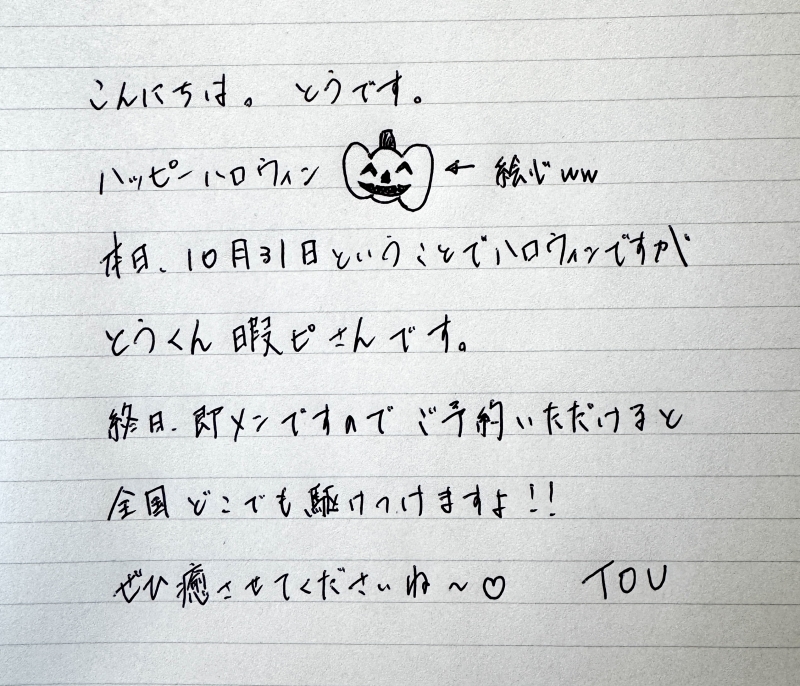 こんにちは。 とうです。
ハッピーハロウィン ← 絵心ww
本日、10月31日ということでハロウィンですが
とうくん暇ピさんです。
終日、即メンですので ご予約いただけると
全国どこでも駆けつけますよ!!
ぜひ癒させてくださいね〜♡ TOU